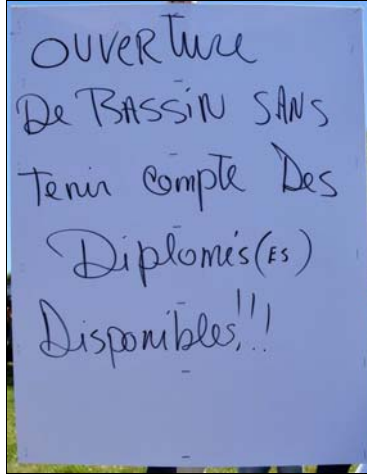 OUVERTURE
De BASSiN SANS
Tenir compte Des
Diplomés(ES)
Disponibles!!!